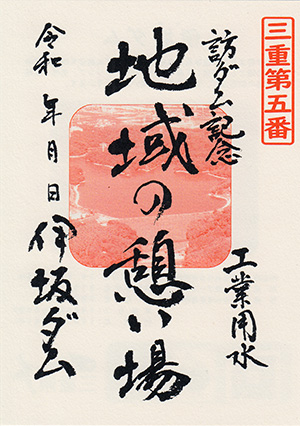 三重第五番
訪ダム記念
工業用水
地域の憩い場
令和 年 月 日
伊坂ダム